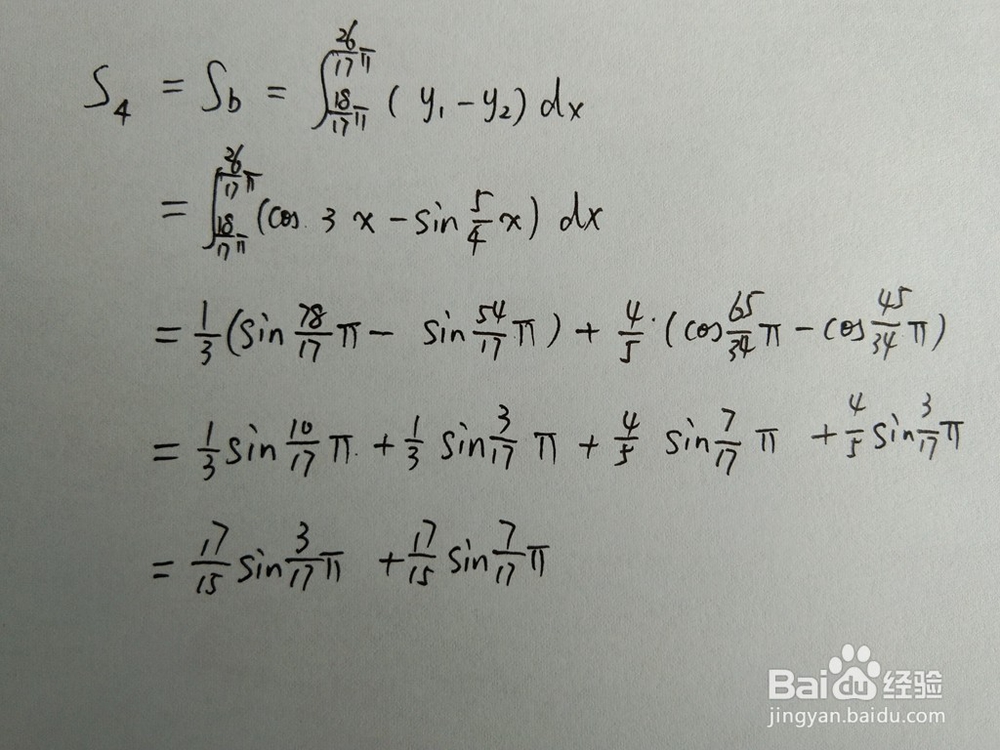 S₄ = S_b = ∫_{18/17 π}^{26/17 π} (y₁ - y₂) dx
= ∫_{18/17 π}^{26/17 π} (cos 3x - sin 5/4 x) dx
= 1/3 (sin 78/17 π - sin 54/17 π) + 4/5 · (cos 65/34 π - cos 45/34 π)
= 1/3 sin 10/17 π + 1/3 sin 3/17 π + 4/5 sin 7/17 π + 4/5 sin 3/17 π
= 17/15 sin 3/17 π + 17/15 sin 7/17 π
Baidu 经验
jingyan.baidu.com